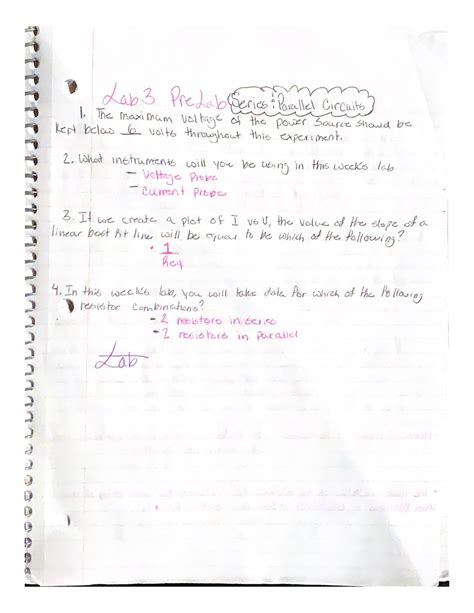 Lab 3 PreLab Series & Parallel Circuits
1. The maximum voltage of the power source should be
kept below 6 volts throughout this experiment.
2. What instruments will you be using in this week's lab
- Voltage Probe
- Current Probe
3. If we create a plot of I vs V, the value of the slope of a
linear best fit line will be equal to be which of the following?
• 1
Req
4. In this week's lab, you will take data for which of the following
resistor combinations?
- 2 resistors in series
- 2 resistors in parallel
Lab